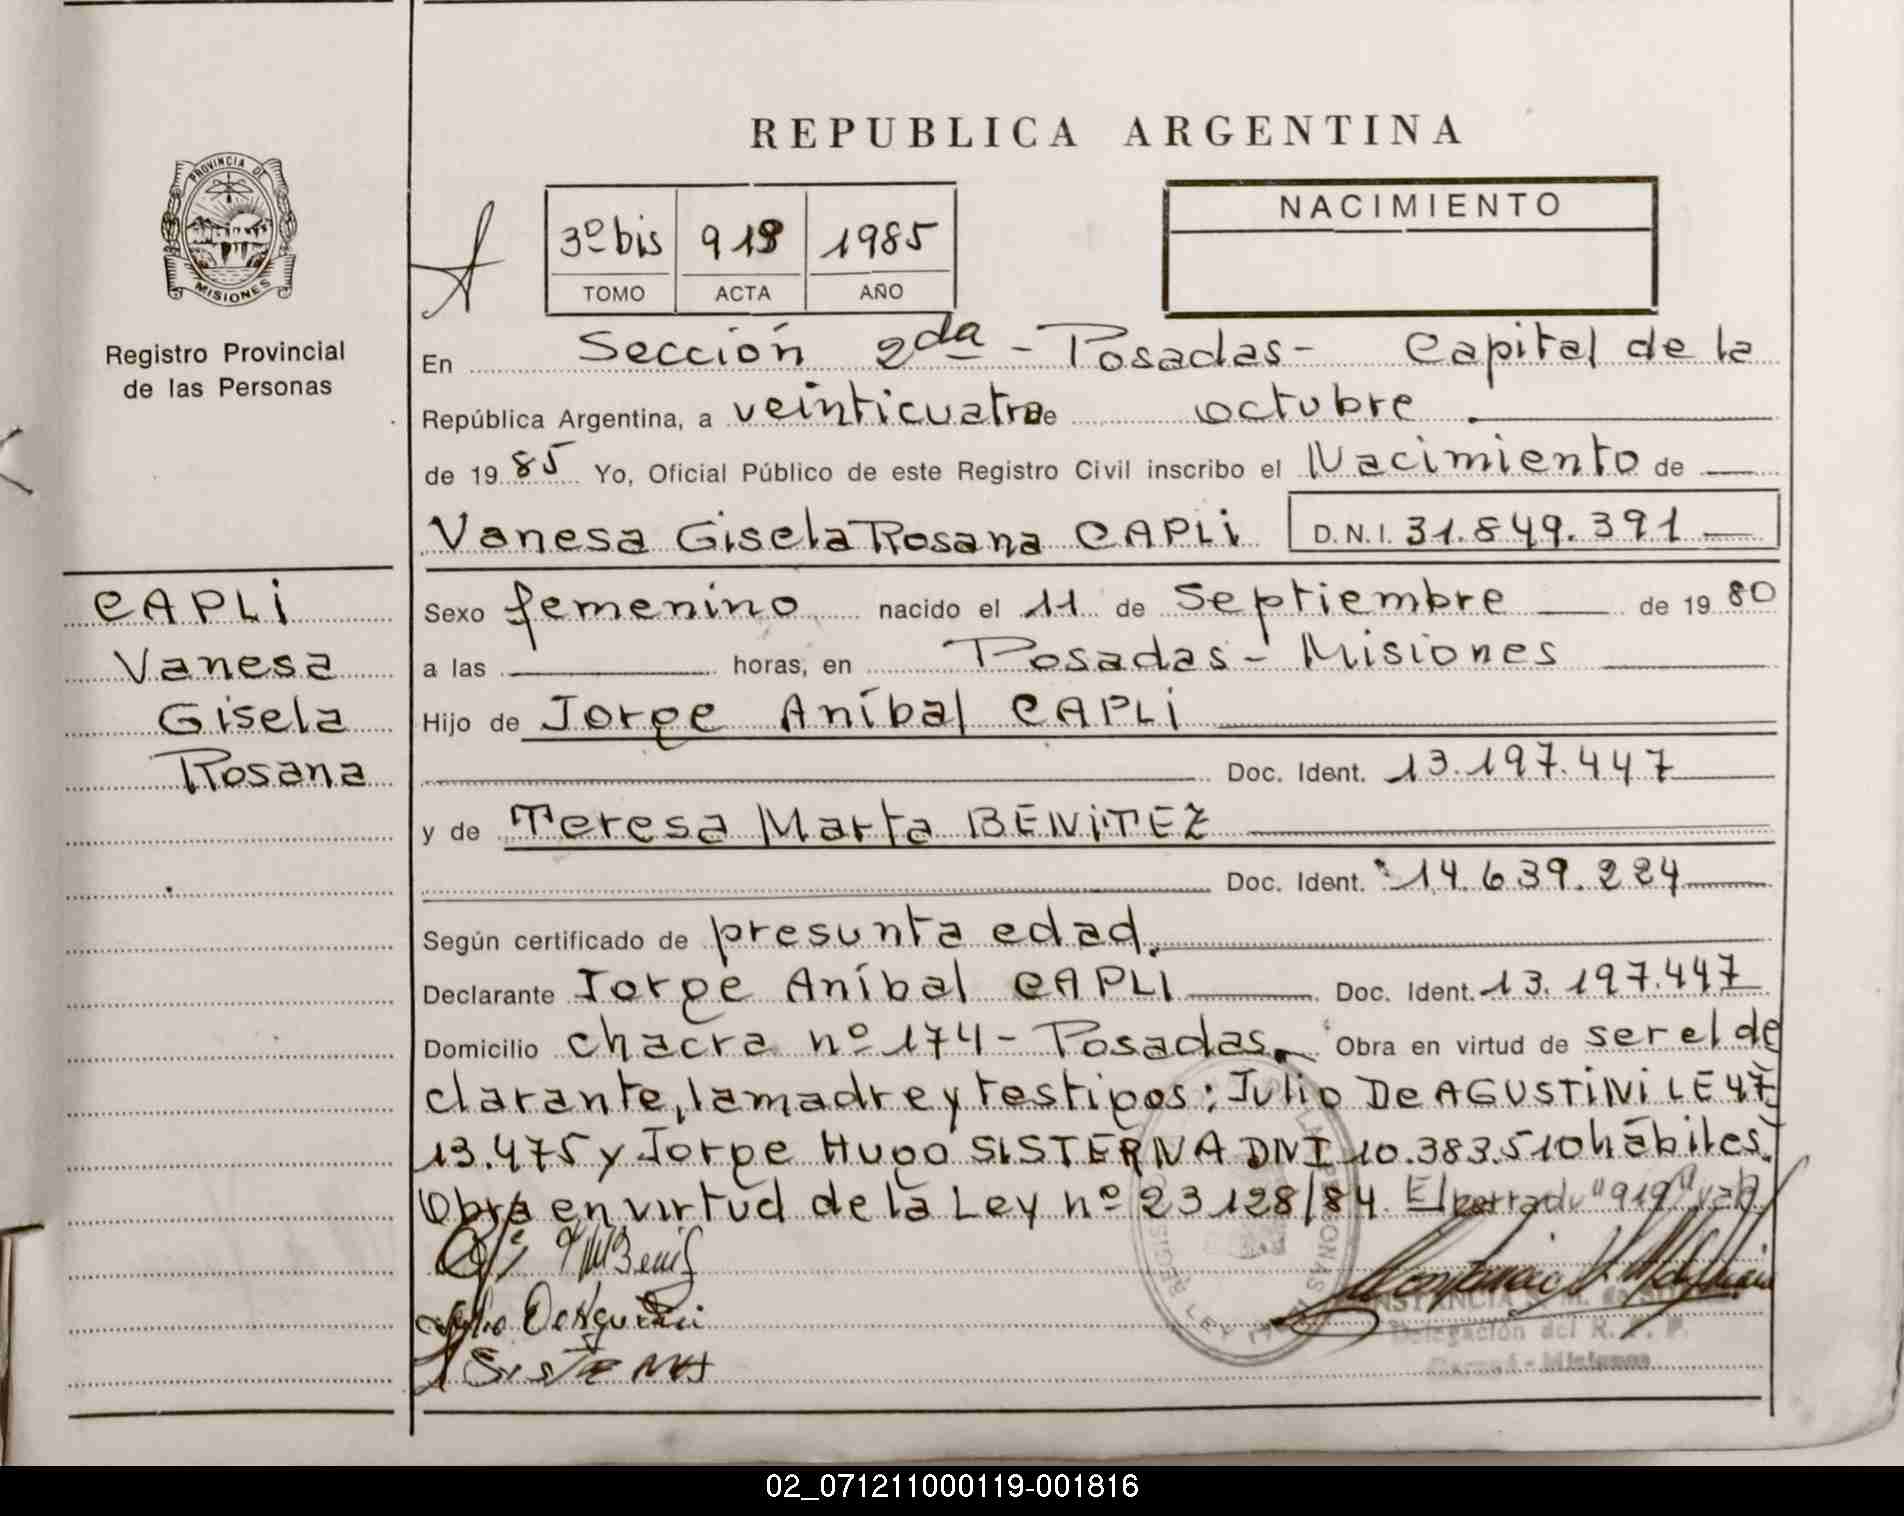 REPUBLICA ARGENTINA
PROVINCIA DE
MISIONES
Registro Provincial
de las Personas
3º bis 919 1985
TOMO ACTA AÑO
NACIMIENTO
En Sección 2da - Posadas - Capital de la
República Argentina, a veinticuatro de octubre
de 1985 Yo, Oficial Público de este Registro Civil inscribo el Nacimiento de
Vanesa Gisela Rosana CAPLI D.N.I. 31.849.391
CAPLI
Vanesa
Gisela
Rosana
Sexo femenino nacido el 11 de Septiembre de 1980
a las horas, en Posadas - Misiones
Hijo de Jorge Aníbal CAPLI
Doc. Ident. 13.197.447
y de Teresa Marta BENITEZ
Doc. Ident. 14.639.224
Según certificado de presunta edad.
Declarante Jorge Aníbal CAPLI Doc. Ident. 13.197.447
Domicilio chacra nº 174 - Posadas. Obra en virtud de ser el de
clarante, la madre y testigos: Julio De AGUSTINI LE 47
13.475 y Jorge Hugo SISTERNA DNI 10.383.510 hábiles.
Obra en virtud de la Ley nº 23128/84. El "919"
SISTERNA
Delegación del R. P. P.
- Misiones
02_071211000119-001816